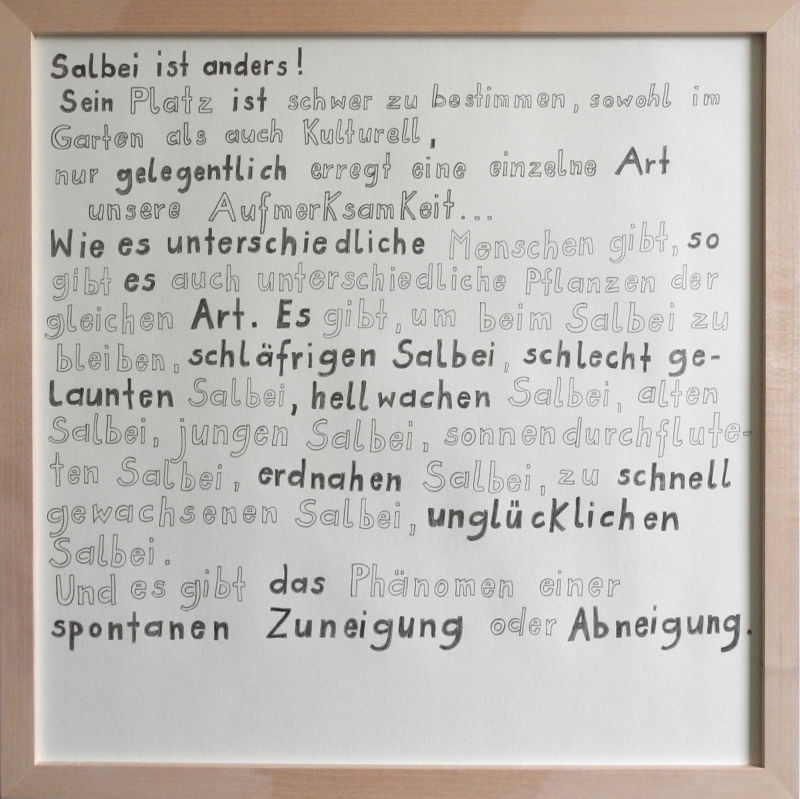 Salbei ist anders!
Sein Platz ist schwer zu bestimmen, sowohl im
Garten als auch Kulturell,
nur gelegentlich erregt eine einzelne Art
unsere Aufmerksamkeit...
Wie es unterschiedliche Menschen gibt, so
gibt es auch unterschiedliche Pflanzen der
gleichen Art. Es gibt, um beim Salbei zu
bleiben, schläfrigen Salbei, schlecht ge-
launten Salbei, hellwachen Salbei, alten
Salbei, jungen Salbei, sonnendurchflute-
ten Salbei, erdnahen Salbei, zu schnell
gewachsenen Salbei, unglücklichen
Salbei.
Und es gibt das Phänomen einer
spontanen Zuneigung oder Abneigung.